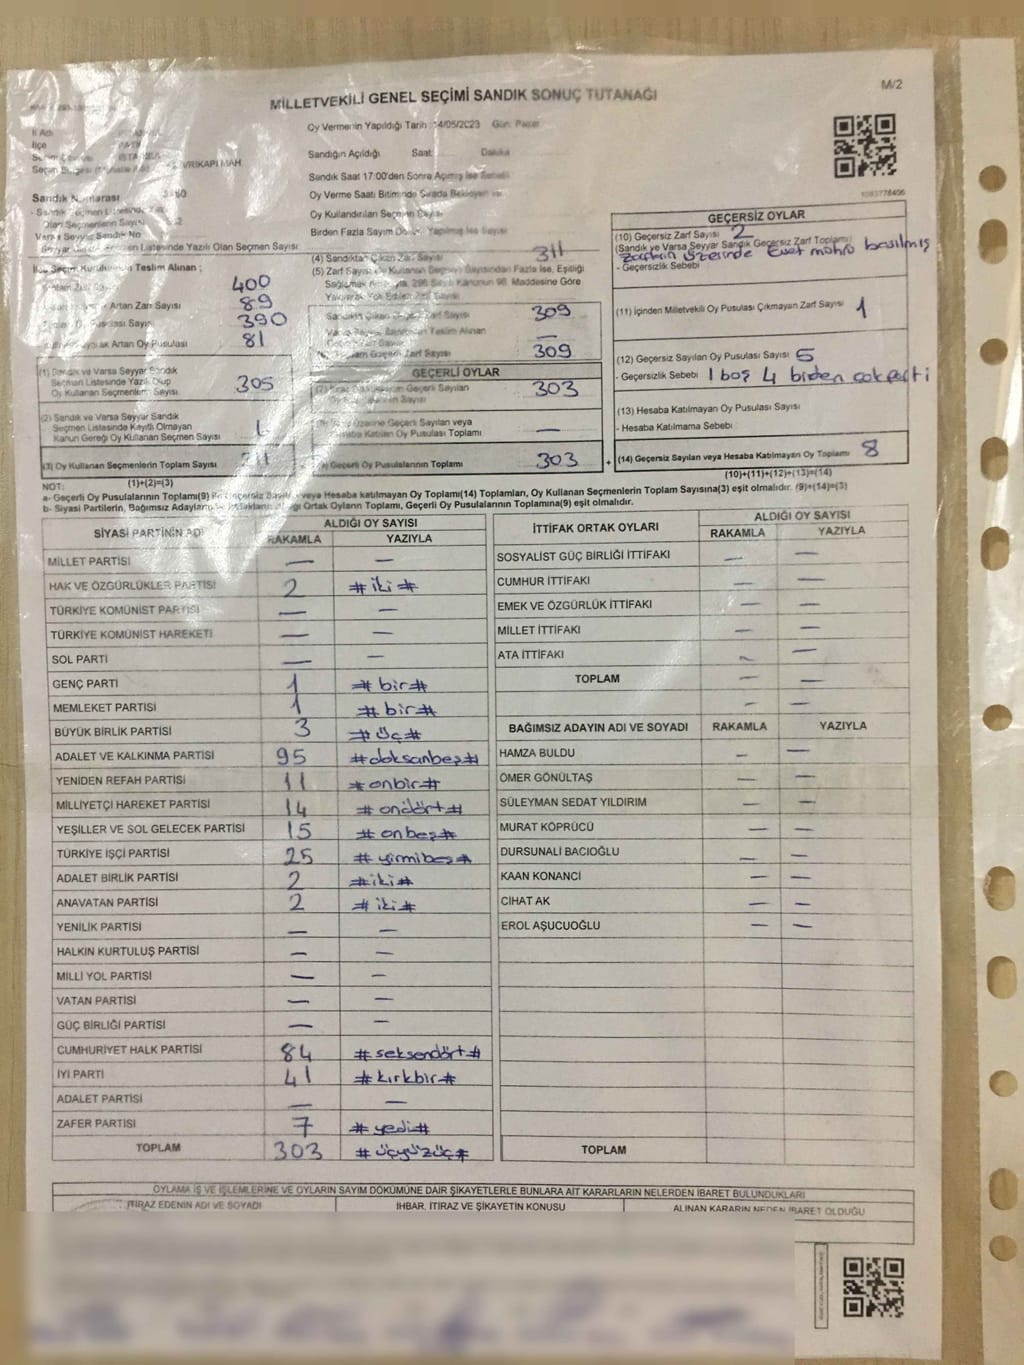 M/2
MİLLETVEKİLİ GENEL SEÇİMİ SANDIK SONUÇ TUTANAĞI
İl Adı
İlçe
VRIKAPI MAH
Oy Vermenin Yapıldığı Tarih 14/05/2023 Gün: Pazar
Sandığın Açıldığı Saat: Dakika
Sandık Saat 17:00'den Sonra Açılmış İse Sebebi
Oy Verme Saati Bitiminde Sırada Bekleyen
Oy Kullandırılan Seçmen Sayısı
Birden Fazla Sayım Yapılmış İse Sayısı
Sandık Numarası
Olan Seçmenlerin Sayısı
Varsa Seyyar Sandık No
Listesinde Yazılı Olan Seçmen Sayısı
Teslim Alınan ;
400
Artan Zarf Sayısı 89
Sayısı 390
Artan Oy Pusulası 81
(1) Sandık ve Varsa Seyyar Sandık
Seçmen Listesinde Yazılı Olup
Oy Kullanan Seçmenlerin Sayısı
305
(2) Sandık ve Varsa Seyyar Sandık
Seçmen Listesinde Kayıtlı Olmayan
Kanun Gereği Oy Kullanan Seçmen Sayısı
(3) Oy Kullanan Seçmenlerin Toplam Sayısı
(1)+(2)=(3)
(4) Sandıktan Çıkan Zarf Sayısı 311
(5) Zarf Sayısı Oy Kullanan Seçmen Sayısından Fazla İse, Eşitliği
Sağlamak 298 Sayılı Kanunun 98. Maddesine Göre
Yakılarak Yok Edilen Zarf Sayısı
Sandıktan Çıkan Zarf Sayısı 309
—
Zarf Sayısı 309
GEÇERLİ OYLAR
Geçerli Sayılan
303
Üzerine Geçerli Sayılan veya
Hesaba Katılan Oy Pusulası Toplamı —
Geçerli Oy Pusulalarının Toplamı 303
+
GEÇERSİZ OYLAR
(10) Geçersiz Zarf Sayısı 2
(Sandık ve Varsa Seyyar Sandık Geçersiz Zarf Toplamı)
zarfların üzerinde Evet mührü basılmış
- Geçersizlik Sebebi
(11) İçinden Milletvekili Oy Pusulası Çıkmayan Zarf Sayısı 1
(12) Geçersiz Sayılan Oy Pusulası Sayısı 5
- Geçersizlik Sebebi 1 boş 4 birden çok parti
(13) Hesaba Katılmayan Oy Pusulası Sayısı
- Hesaba Katılmama Sebebi
(14) Geçersiz Sayılan veya Hesaba Katılmayan Oy Toplamı 8
(10)+(11)+(12)+(13)=(14)
NOT:
a- Geçerli Oy Pusulalarının Toplamı(9) ile Geçersiz Sayılan veya Hesaba katılmayan Oy Toplamı(14) Toplamları, Oy Kullanan Seçmenlerin Toplam Sayısına(3) eşit olmalıdır. (9)+(14)=(3)
b- Siyasi Partilerin, Bağımsız Adayların ve Ortak Oyların Toplamı, Geçerli Oy Pusulalarının Toplamına(9) eşit olmalıdır.
SİYASİ PARTİNİN ADI ALDIĞI OY SAYISI
RAKAMLA YAZIYLA
MİLLET PARTİSİ — —
HAK VE ÖZGÜRLÜKLER PARTİSİ 2 #iki#
TÜRKİYE KOMÜNİST PARTİSİ — —
TÜRKİYE KOMÜNİST HAREKETİ — —
SOL PARTİ — —
GENÇ PARTİ 1 #bir#
MEMLEKET PARTİSİ 1 #bir#
BÜYÜK BİRLİK PARTİSİ 3 #üç#
ADALET VE KALKINMA PARTİSİ 95 #doksanbeş#
YENİDEN REFAH PARTİSİ 11 #onbir#
MİLLİYETÇİ HAREKET PARTİSİ 14 #ondört#
YEŞİLLER VE SOL GELECEK PARTİSİ 15 #onbeş#
TÜRKİYE İŞÇİ PARTİSİ 25 #yirmibeş#
ADALET BİRLİK PARTİSİ 2 #iki#
ANAVATAN PARTİSİ 2 #iki#
YENİLİK PARTİSİ — —
HALKIN KURTULUŞ PARTİSİ — —
MİLLİ YOL PARTİSİ — —
VATAN PARTİSİ — —
GÜÇ BİRLİĞİ PARTİSİ — —
CUMHURİYET HALK PARTİSİ 84 #seksendört#
İYİ PARTİ 41 #kırkbir#
ADALET PARTİSİ — —
ZAFER PARTİSİ 7 #yedi#
TOPLAM 303 #üçyüzüç#
İTTİFAK ORTAK OYLARI ALDIĞI OY SAYISI
RAKAMLA YAZIYLA
SOSYALİST GÜÇ BİRLİĞİ İTTİFAKI — —
CUMHUR İTTİFAKI — —
EMEK VE ÖZGÜRLÜK İTTİFAKI — —
MİLLET İTTİFAKI — —
ATA İTTİFAKI — —
TOPLAM — —
— —
BAĞIMSIZ ADAYIN ADI VE SOYADI RAKAMLA YAZIYLA
HAMZA BULDU — —
ÖMER GÖNÜLTAŞ — —
SÜLEYMAN SEDAT YILDIRIM — —
MURAT KÖPRÜCÜ — —
DURSUNALİ BACIOĞLU — —
KAAN KONANCİ — —
CİHAT AK — —
EROL AŞUCUOĞLU — —
TOPLAM
OYLAMA İŞ VE İŞLEMLERİNE VE OYLARIN SAYIM DÖKÜMÜNE DAİR ŞİKAYETLERLE BUNLARA AİT KARARLARIN NELERDEN İBARET BULUNDUKLARI
İTİRAZ EDENİN ADI VE SOYADI İHBAR, İTİRAZ VE ŞİKAYETİN KONUSU ALINAN KARARIN NEDEN İBARET OLDUĞU